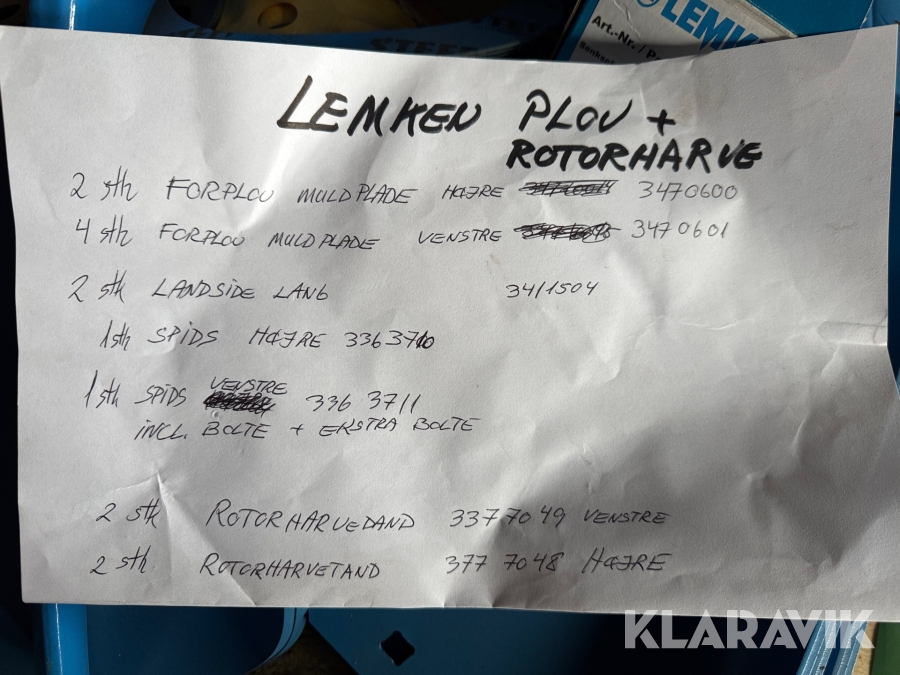 LEMKEN
Art.-Nr. / Pa
LEMKEN PLOV +
ROTORHARVE
2 stk FORPLOV MULDPLADE HØJRE 3470600
4 stk FORPLOV MULDPLADE VENSTRE 3470601
2 stk LANDSIDE LANG 3411504
1 stk SPIDS HØJRE 3363710
1 stk SPIDS VENSTRE 336 3711
INCL. BOLTE + EKSTRA BOLTE
2 stk ROTORHARVEDAND 3377049 VENSTRE
2 stk ROTORHARVETAND 377 7048 HØJRE
KLARAVIK